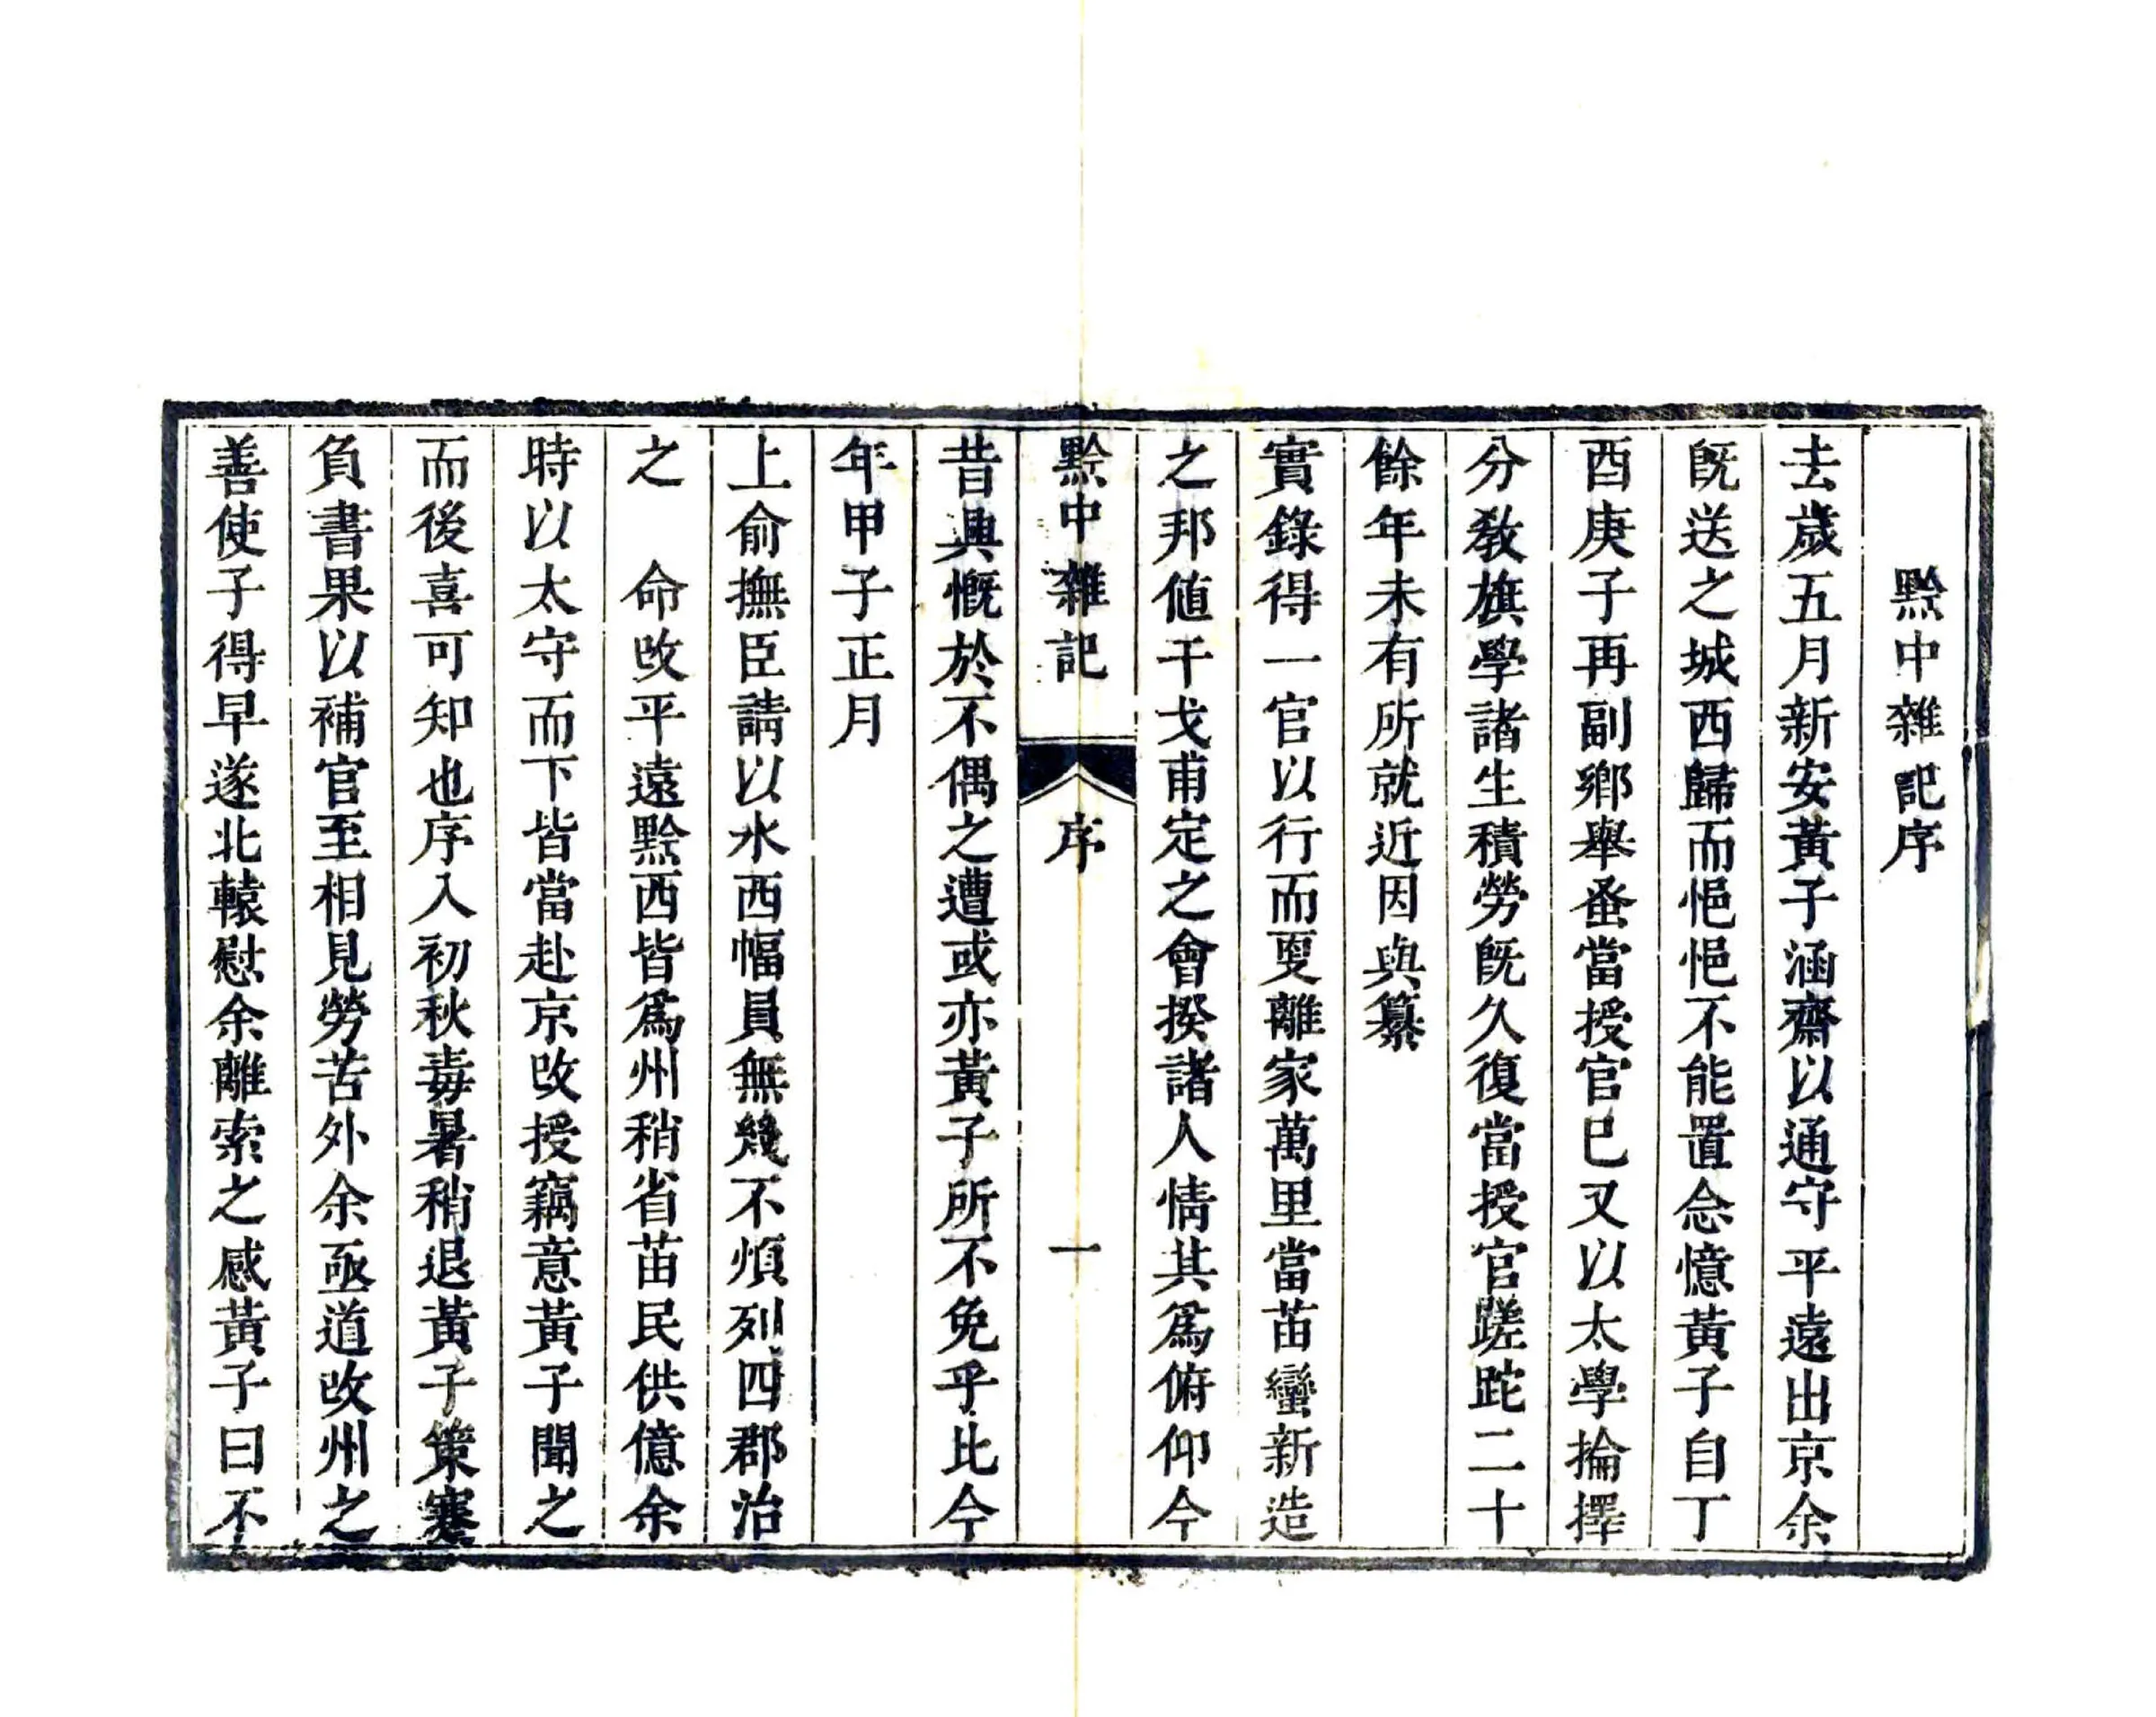 黔中雜記序
去歲五月新安黃子涵齋以通守平遠出京余
旣送之城西歸而悒悒不能置念憶黃子自丁
酉庚子再副鄉舉蚤當授官已又以太學掄擇
分敎旗學諸生積勞旣久復當授官蹉跎二十
餘年未有所就近因與纂
實錄得一官以行而叓離家萬里當苗蠻新造
之邦値干戈甫定之會揆諸人情其爲俯仰今
黔中雜記 序 一
昔興慨於不偶之遭或亦黃子所不免乎比今
年甲子正月
上俞撫臣請以水西幅員無幾不煩列四郡治
之 命改平遠黔西皆爲州稍省苗民供億余
時以太守而下皆當赴京改授竊意黃子聞之
而後喜可知也序入初秋毒暑稍退黃子策蹇
負書果以補官至相見勞苦外余亟道改州之
善使子得早遂北轅慰余離索之感黃子曰不